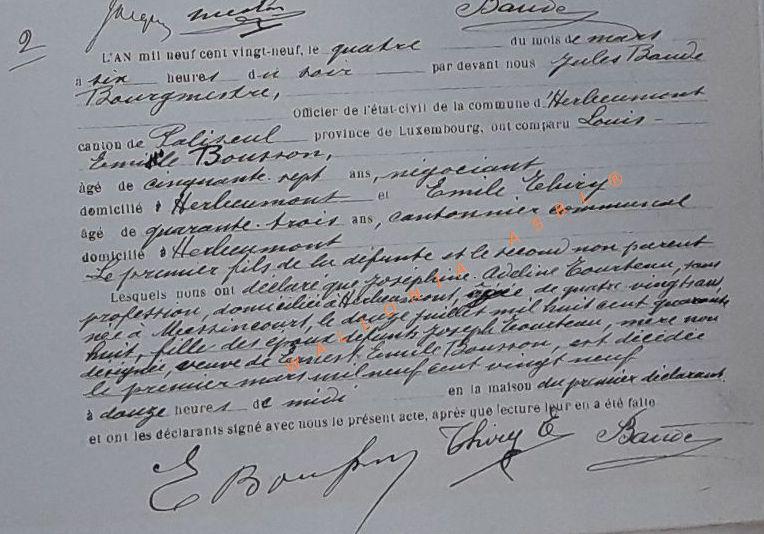 Baude
2
L'AN mil neuf cent vingt-neuf, le quatre du mois de mars
à six heures du soir par devant nous Jules Baude
Bourgmestre,
Officier de l'état-civil de la commune d'Herbeumont
canton de Paliseul province de Luxembourg, ont comparu Louis-
Emile Bousson,
âgé de cinquante-sept ans, négociant
domicilié à Herbeumont et Emile Thiry
âgé de quarante-trois ans, cantonnier communal
domicilié à Herbeumont
Le premier fils de la défunte et le second non parent
Lesquels nous ont déclaré que Joséphine-Adeline Tourteau, sans
profession, domiciliée à Herbeumont, âgée de quatre vingts ans,
née à Messincourt, le douze juillet mil huit cent quarante
huit, fille des époux défunts Joseph Tourteau, mère non
désignée, veuve de Ernest-Emile Bousson, est décédée
le premier mars mil neuf cent vingt neuf
à douze heures de midi en la maison du premier déclarant.
et ont les déclarants signé avec nous le présent acte, après que lecture leur en a été faite
E Bousson Thiry E Baude
WALLONIA ASBL ®